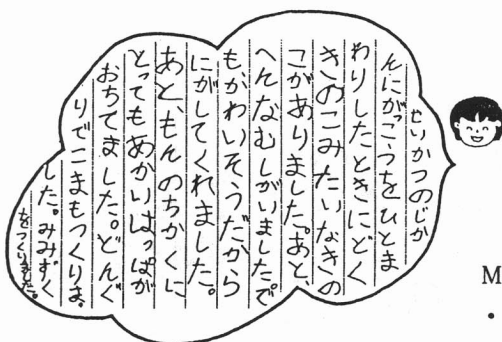 せいかつのじか
んにがっこうをひとま
わりしたときにどく
きのこみたいなきの
こがありました。あと
へんなむしがいました。で
もかわいそうだから
にがしてくれました。
あと、もんのちかくに
とってもあかいはっぱが
おちてました。どんぐ
りでこまもつくりま
した。みみずく
をつくりました。
M
・